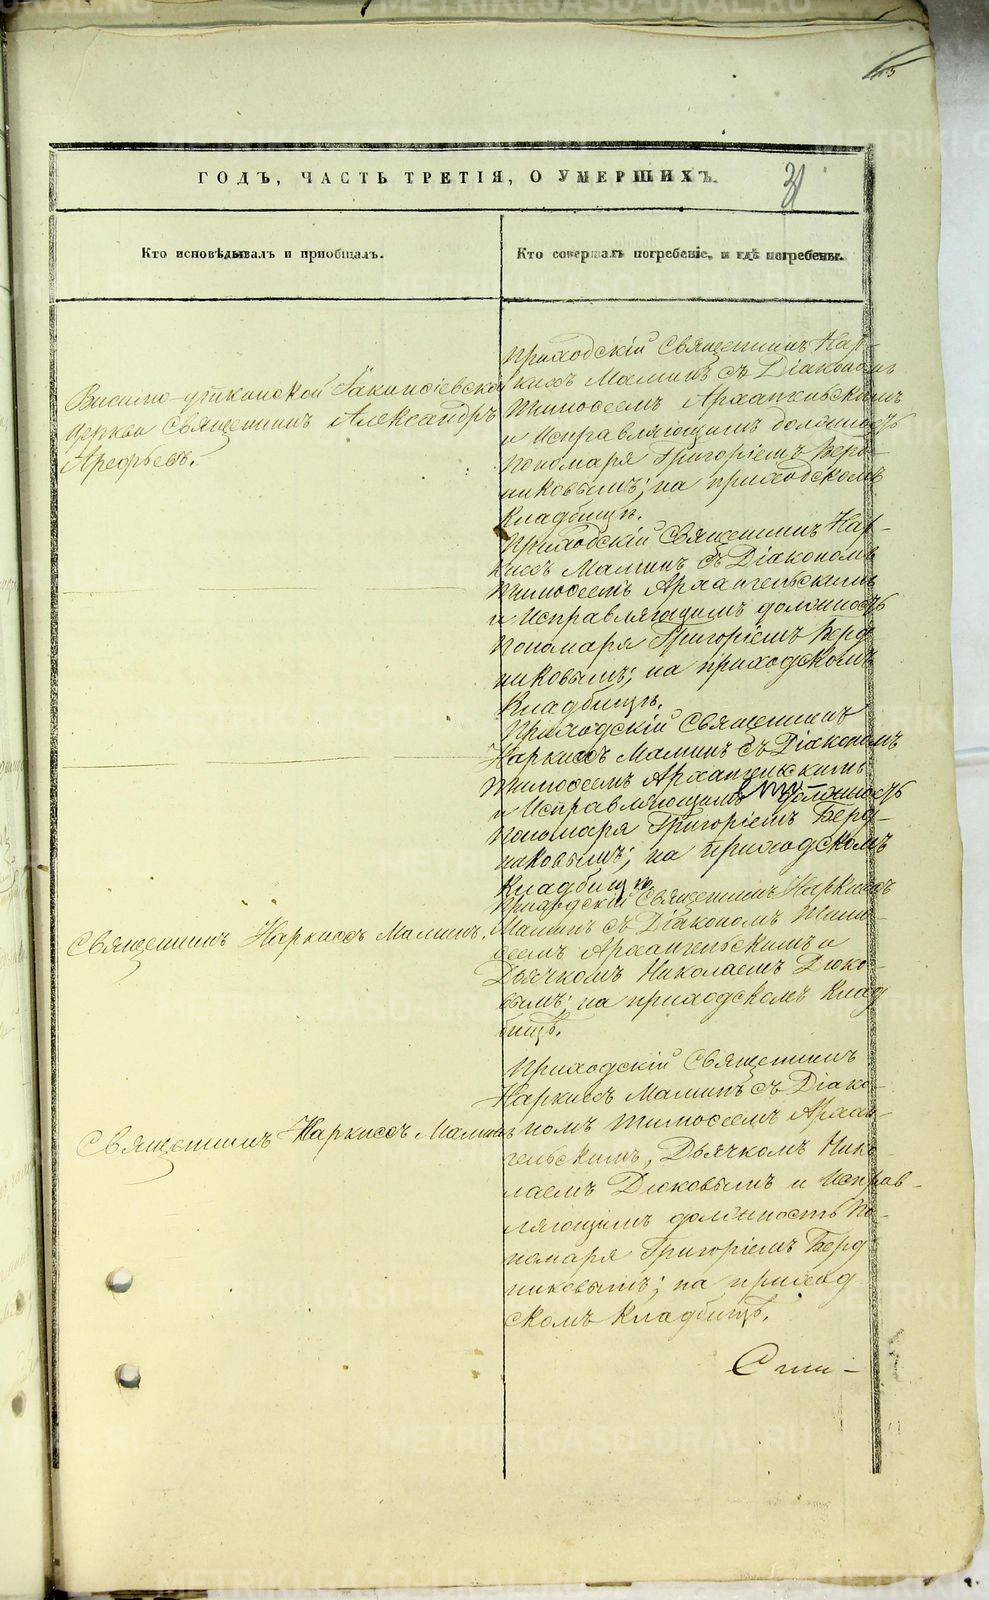 ГОДЪ, ЧАСТЬ ТРЕТІЯ, О УМЕРШИХЪ.
31
Кто исповѣдывалъ и пріобщалъ.
Кто совершалъ погребеніе, и гдѣ погребены.
Висимо-уткинской Іакинѳіевской
церкви Священникъ Александръ
Арефьевъ.
Приходскій Священникъ Нар-
киссъ Маминъ съ Діакономъ
Тимоѳеемъ Архангельскимъ
и Исправляющимъ должность
пономаря Григоріемъ Берд-
никовымъ; на приходскомъ
Кладбищѣ.
Приходскій Священникъ Нар-
киссъ Маминъ съ Діакономъ
Тимоѳеемъ Архангельскимъ
и Исправляющимъ должность
пономаря Григоріемъ Берд
никовымъ; на приходскомъ
Кладбищѣ.
Приходскій Священникъ
Наркиссъ Маминъ съ Діакономъ
Тимоѳеемъ Архангельскимъ
и Исправляющимъ должность
пономаря Григоріемъ Берд-
никовымъ; на приходскомъ
Кладбищѣ.
Священникъ Наркиссъ Маминъ.
Приходскій Священникъ Наркиссъ
Маминъ съ Діакономъ Тимо-
ѳеемъ Архангельскимъ и
Дьячкомъ Николаемъ Дюко-
вымъ; на приходскомъ Клад
бищѣ.
Священникъ Наркиссъ Маминъ
Приходскій Священникъ
Наркиссъ Маминъ съ Діако-
номъ Тимоѳеемъ Архан-
гельскимъ, Дьячкомъ Нико-
лаемъ Дюковымъ и Исправ-
ляющимъ должность По-
номаря Григоріемъ Берд
никовымъ; на приход
скомъ Кладбищѣ.
METRIKI.GASO-URAL.RU